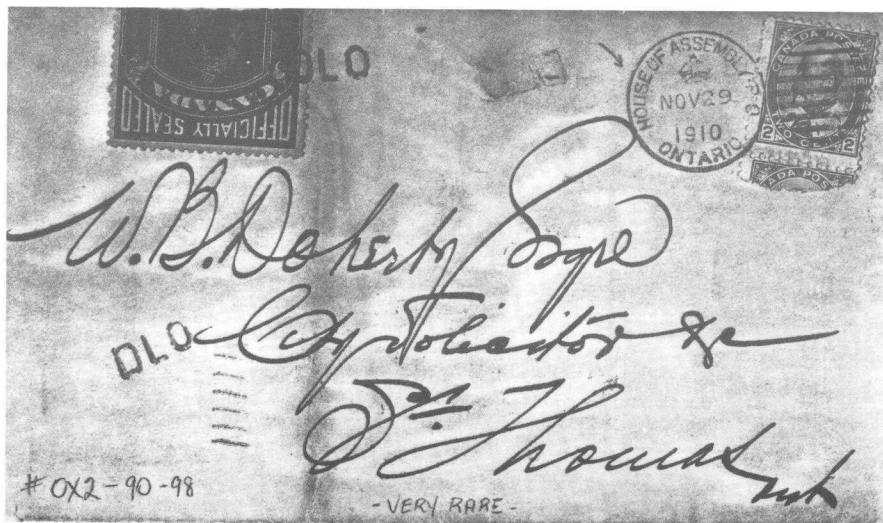 DLO
OFFICIALLY SEALED
CANADA
HOUSE OF ASSEMBLY P.O.
NOV 29
1910
ONTARIO
CANADA POSTAGE
2 TWO CENTS 2
ADA POS
W. B. Doherty Esqre
DLO
City Solicitor &c
St. Thomas
Ont
# OX2-90-98
- VERY RARE -